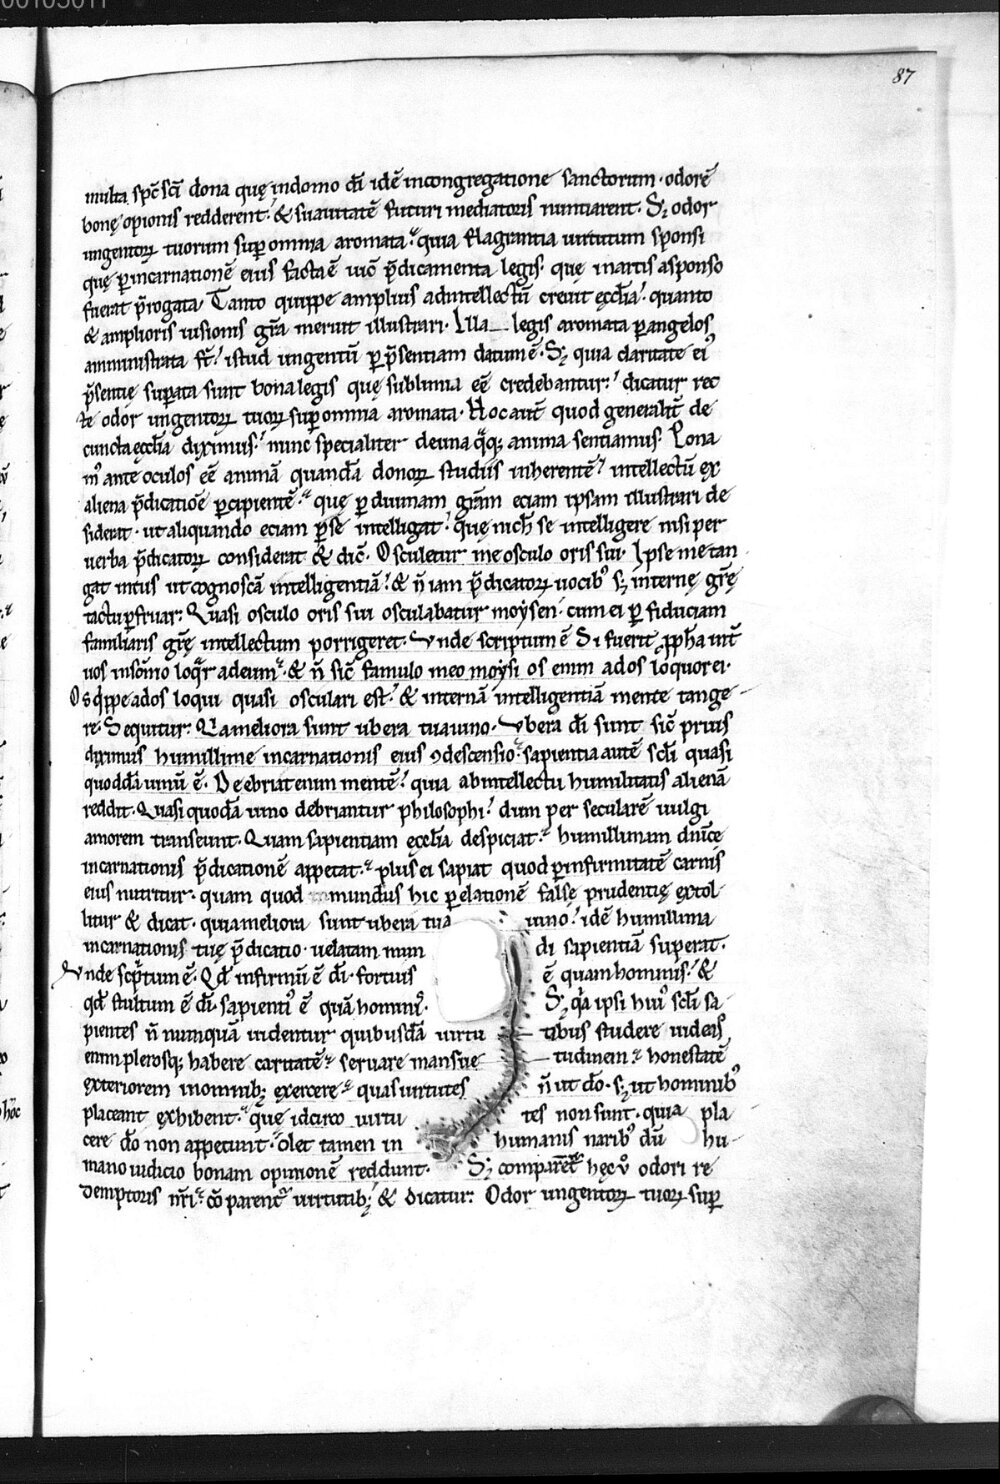 87
multa spc̄ sci dona quę indomo dī idē incongregatione sanctorum · odorē
bonę opionis redderent · & suauitatē futuri mediatoris nuntiarent. Sꝫ odor
ungentoꝝ tuorum suꝑ omnia aromata · quia flagrantia uirtutum sponsi
quę ꝑincarnationē eius facta ē uic̄ p̄dicamenta legis · quę inartis asponso
fuerat p̄rogata · Tanto quippe amplius adintellectū creuit ęcclia · quanto
& amplioris uisionis gr̄a meruit illustrari · Illa legis aromata ꝑangelos
amministrata st̄ · istud ungentū ꝑ p̄sentiam datum ē · Sꝫ quia claritate ei᾽
p̄sentię suꝑata sunt bona legis quę sublimia eē credebantur · dicatur rec
te odor ungentoꝝ tuoꝝ suꝑomnia aromata · Hoc aut̄ quod generalit̄ de
cuncta ęcclia diximus · nunc specialiter deuna q̄qꝫ anima sentiamus · Pona
m᾽ ante oculos eē animā quandā donoꝝ studiis inherentē · intellectū ex
aliena p̄dicatiōe ꝑcipientē · quę ꝑ diuinam gr̄am eciam ipsam illustrari de
siderat · ut aliquando eciam ꝑse intelligat · quę nich̄ se intelligere nisi per
uerba p̄dicatoꝝ considerat & dic̄ · Osculetur me osculo oris sui · Ipse me tan
gat intus ut cognoscā intelligentiā · & n̄ iam p̄dicatoꝝ uocib᾽ sꝫ internę gr̄ę
tactu ꝑfruar · Quasi osculo oris sui osculabatur moẏsen · cum ei ꝑ fiduciam
familiaris gr̄ę intellectum porrigeret · Vnde scriptum ē Si fuerit ꝓph̄a int̄
uos insōnio loq̄r adeum · & n̄ sic̄ famulo meo moẏsi os enim ados loquor ei ·
Os q̄ppe ados loqui quasi osculari est · & internā intelligentiā mente tange
re · Sequitur · Q̄a meliora sunt ubera tua uino · Vbera dī sunt sic̄ prius
diximus humillime incarnationis eius ꝯdescensio · sapientia autē scl̄i quasi
quoddā uinū ē · Deebriat enim mentē · quia abintellectu humilitatis alienā
reddit · Quasi quodā uino debriantur philosophi · dum per secularē uulgi
amorem transeunt · Quam sapientiam ęcclia despiciat · humillimam dn̄ice
incarnationis p̄dicationē appetat · plus ei sapiat quod ꝑinfirmitatē carnis
eius nutritur · quam quod mundus hic ꝑelationē false prudentię extol
litur & dicat · quia meliora sunt ubera tua uino · idē humillima
incarnationis tuę p̄dicatio · uelatam mun di sapientiā superat ·
Vnde scp̄tum ē · Qđ infirmū ē dī · fortius ē quam hominis · &
qđ stultum ē dī · sapienti᾽ ē quā homini᾽ · Sꝫ q̄a ipsi hui᾽ scl̄i sa
pientes n̄ numquā uidentur quibusdā uirtu tibus studere uideas
enim plerosqꝫ habere caritatē · seruare mansue tudinem · honestatē
exteriorem inomnibꝫ exercere · quas uirtutes n̄ ut dō · sꝫ ut hominib᾽
placeant exhibent · quę idcirco uirtu tes non sunt · quia pla
cere dō non appetunt · olet tamen in humanis narib᾽ dū hu
mano iudicio bonam opinionē reddunt · Sꝫ comparet᾽ hęc odori re
demptoris nr̄i · cōparent᾽ uirtutibꝫ & dicatur · Odor ungentoꝝ tuoꝝ suꝑ